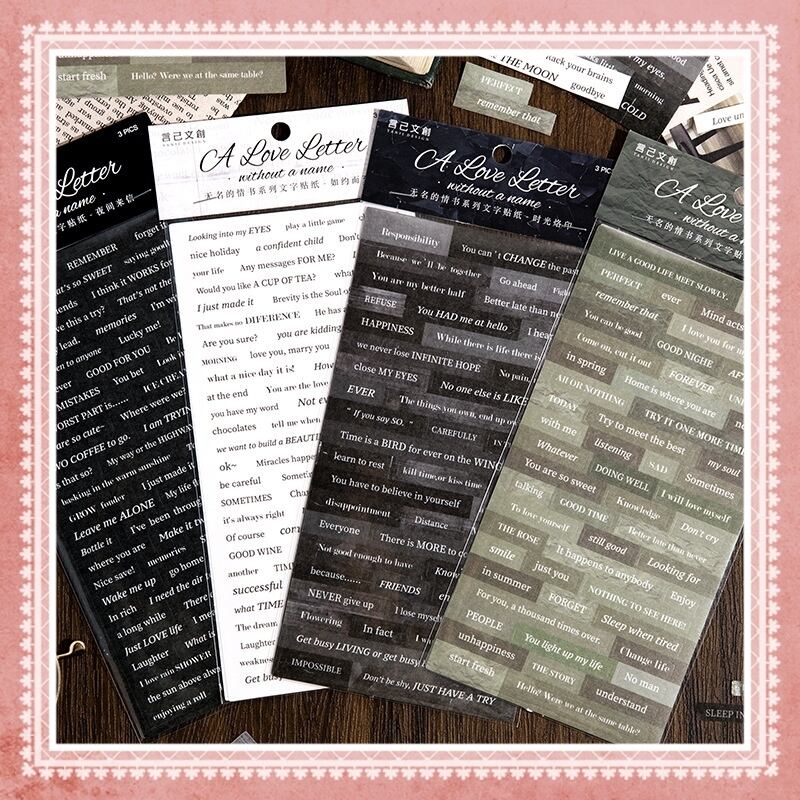 start fresh
Hello? Were we at the same table?
THE MOON
rack your brains
goodbye
my eyes.
morning
COLD
PERFECT
remember that
Love un
3 PICS
Letter
a name
字贴纸·夜间来信
REMEMBER
forget i
at's so SWEET
saying good
ends
I think it WORKS fo
ve this a try?
That's not the
lead.
memories
I'm wi
Lucky me!
en to anyone
GOOD FOR YOU
MISTAKES
You bet
Look
ORST PART is......
ICE CREA
are so cute~
Where were we
VO COFFEE to go.
I am TRYIN
s that so?
My way or the HIGHWA
basking in the warm sunshine
GROW fonder
I just made it
Leave me ALONE
My life
Bottle it
I've been through
where you are
Make it
Nice save!
memories
Wake me up
go home
In rich
I need the air
a long while
There
Just LOVE life
I mea
Laughter
What is
I love rain SHOWER
the sun above alwa
enjoying a roll
言己文創
YANJI DESIGN
A Love Letter
without a name
无名的情书系列文字贴纸·如约而
Looking into my EYES
play a little game
nice holiday
a confident child
Don't
your life
Any messages FOR ME?
Would you like A CUP OF TEA?
what
I just made it
Brevity is the Soul of
That makes no DIFERENCE
He has a
Are you sure?
you are kidding
MORNING
love you, marry you
what a nice day it is!
How
at the end
You are the love
you have my word
Not ev
chocolates
tell me when
we want to build a BEAUTI
ok~
Miracles happe
be careful
Someti
SOMETIMES
Chan
it's always right
Of course
con
GOOD WINE
another
TIM
successful
what TIME
The dream
Laughter
weakness
Get busy
言己文創
YANJI DESIGN
3 PIC
A Love Letter
without a name
无名的情书系列文字贴纸·时光烙印
Responsibility
You can't CHANGE the past
Because we'll be together
Go ahead
Figh
You are my better half
Better late than ne
REFUSE
You HAD me at hello
I hea
HAPPINESS
While there is life there is
we never lose INFINITE HOPE
No pain,
close MY EYES
No one else is LIKE
EVER
The things you own, end up ow
"If you say SO. "
CAREFULLY
IN
Time is a BIRD for ever on the WING
learn to rest
kill time,or kiss time
You have to believe in yourself
disappointment
Distance
Everyone
There is MORE to do
Not good enough to have
Know
because......
FRIENDS
en
NEVER give up
I lose mysel
Flowering
In fact
I w
Get busy LIVING or get busy
IMPOSSIBLE
Don't be shy, JUST HAVE A TRY
言己文創
YANJI DESIGN
A Love
without a
无名的情书系列文字贴
LIVE A GOOD LIFE MEET SLOWLY.
PERFECT
ever
Mind acts
remember that
I love you for
You can be good
Come on, cut it out
GOOD NIGHE
AF
in spring
FOREVER
UN
All OR NOTHING
Home is where you are
no
TODAY
TRY IT ONE MORE TIME
with me
Try to meet the best
Whatever
listening
SAD
my soul
You are so sweet
DOING WELL
Sometimes
talking
GOOD TIME
I will love myself
To love yourself
Knowledge
Don't cry
THE ROSE
still good
Better late than never
smile
just you
It happens to anybody
Looking for
in summer
FORGET
NOTHING TO SEE HERE!
Enjoy
For you, a thousand times over.
Sleep when tired
PEOPLE
You light up my life
Change life
unhappiness
THE STORY
No man
start fresh
understand
Hello? Were we at the same table?
SLEEP IN